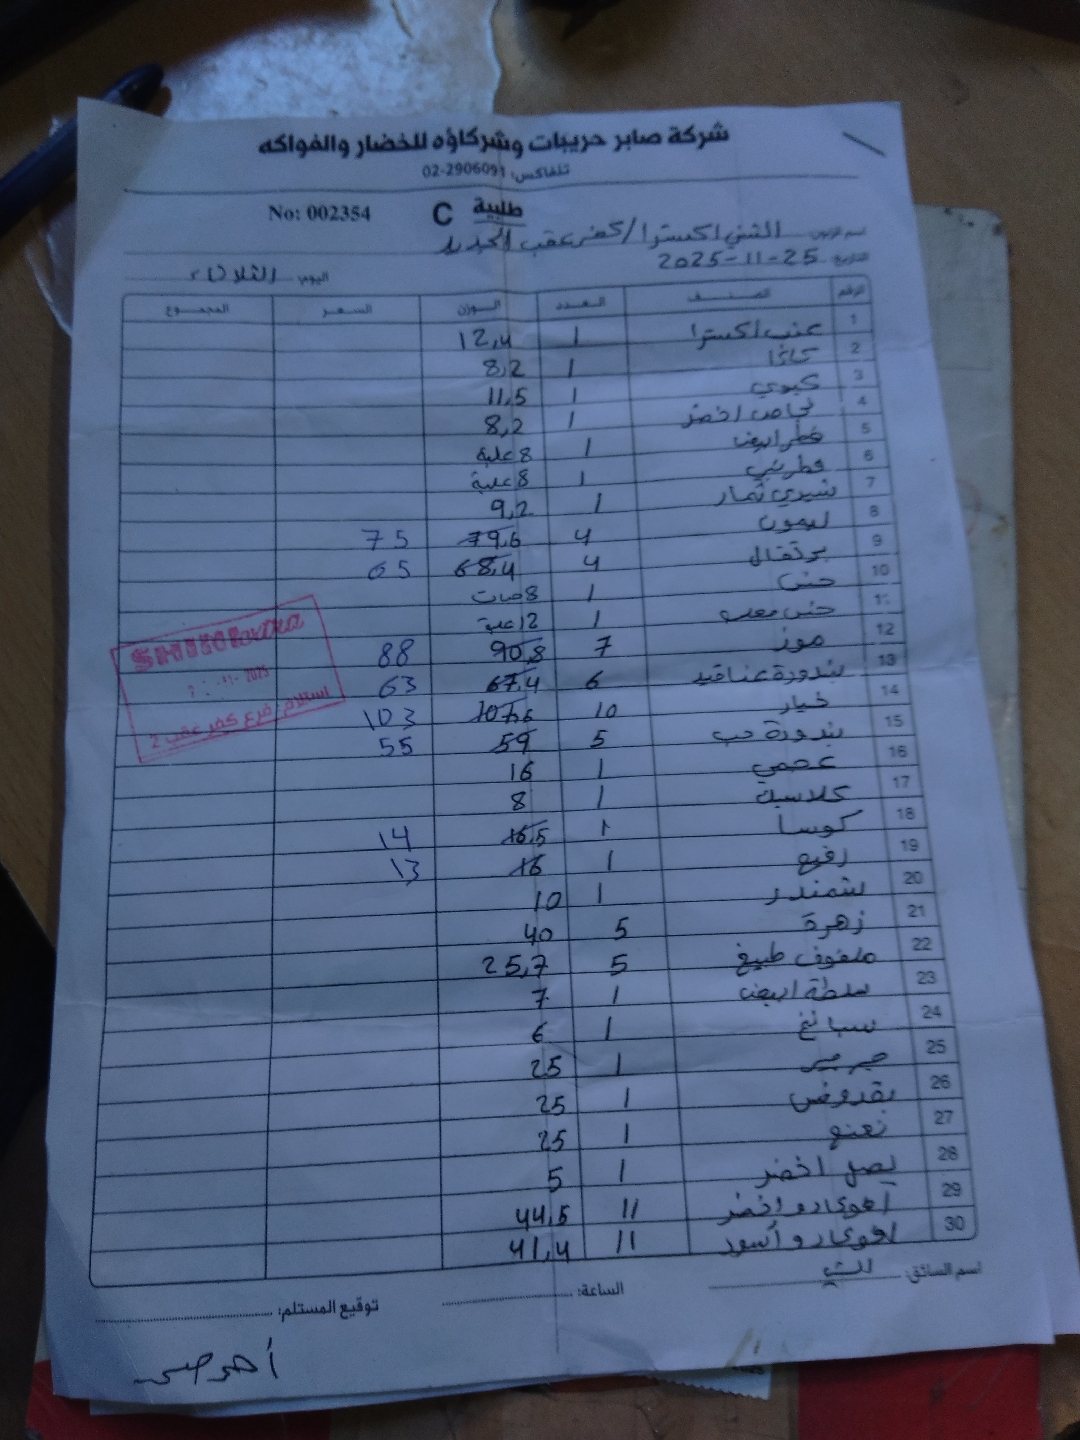 شركة صابر حريبات وشركاؤه للخضار والفواكه
تلفاكس: 02-2906091
طلبية C No: 002354
اسم الزبون: الشني اكسترا/كفر عقب الجديد
التاريخ: 25-11-2025
اليوم: الثلاثاء
الرقم الصنف العدد الوزن السعر المجموع
1 عنب اكسترا 1 12,4
2 كاكا 1 8,2
3 كيوي 1 11,5
4 اخضر 1 8,2
5 فطر ابيض 1 8 علبة
6 فطر بني 1 8 علبة
7 شيري تمار 1 9,2
8 ليمون 4 79,6 75
9 برتقال 4 68,4 65
10 خس 1 8 حبات
11 خس معلب 1 12 علبة
12 موز 7 90,8 88
13 بندورة عناقيد 6 67,4 63
14 خيار 10 107,6 103
15 بندورة حب 5 59 55
16 عجمي 1 16
17 كلاسيك 1 8
18 كوسا 1 16,5 14
19 رفيع 1 16 13
20 شمندر 1 10
21 زهرة 5 40
22 ملفوف طبيخ 5 25,7
23 سلطة ابيض 1 7
24 سبانخ 1 6
25 جرجير 1 25
26 بقدونس 1 25
27 نعنع 1 25
28 بصل اخضر 1 5
29 افوكادو اخضر 11 44,5
30 افوكادو أسود 11 41,4
SHINI extra
2025
استلام فرع كفر عقب 2
اسم السائق: الساعة: توقيع المستلم: